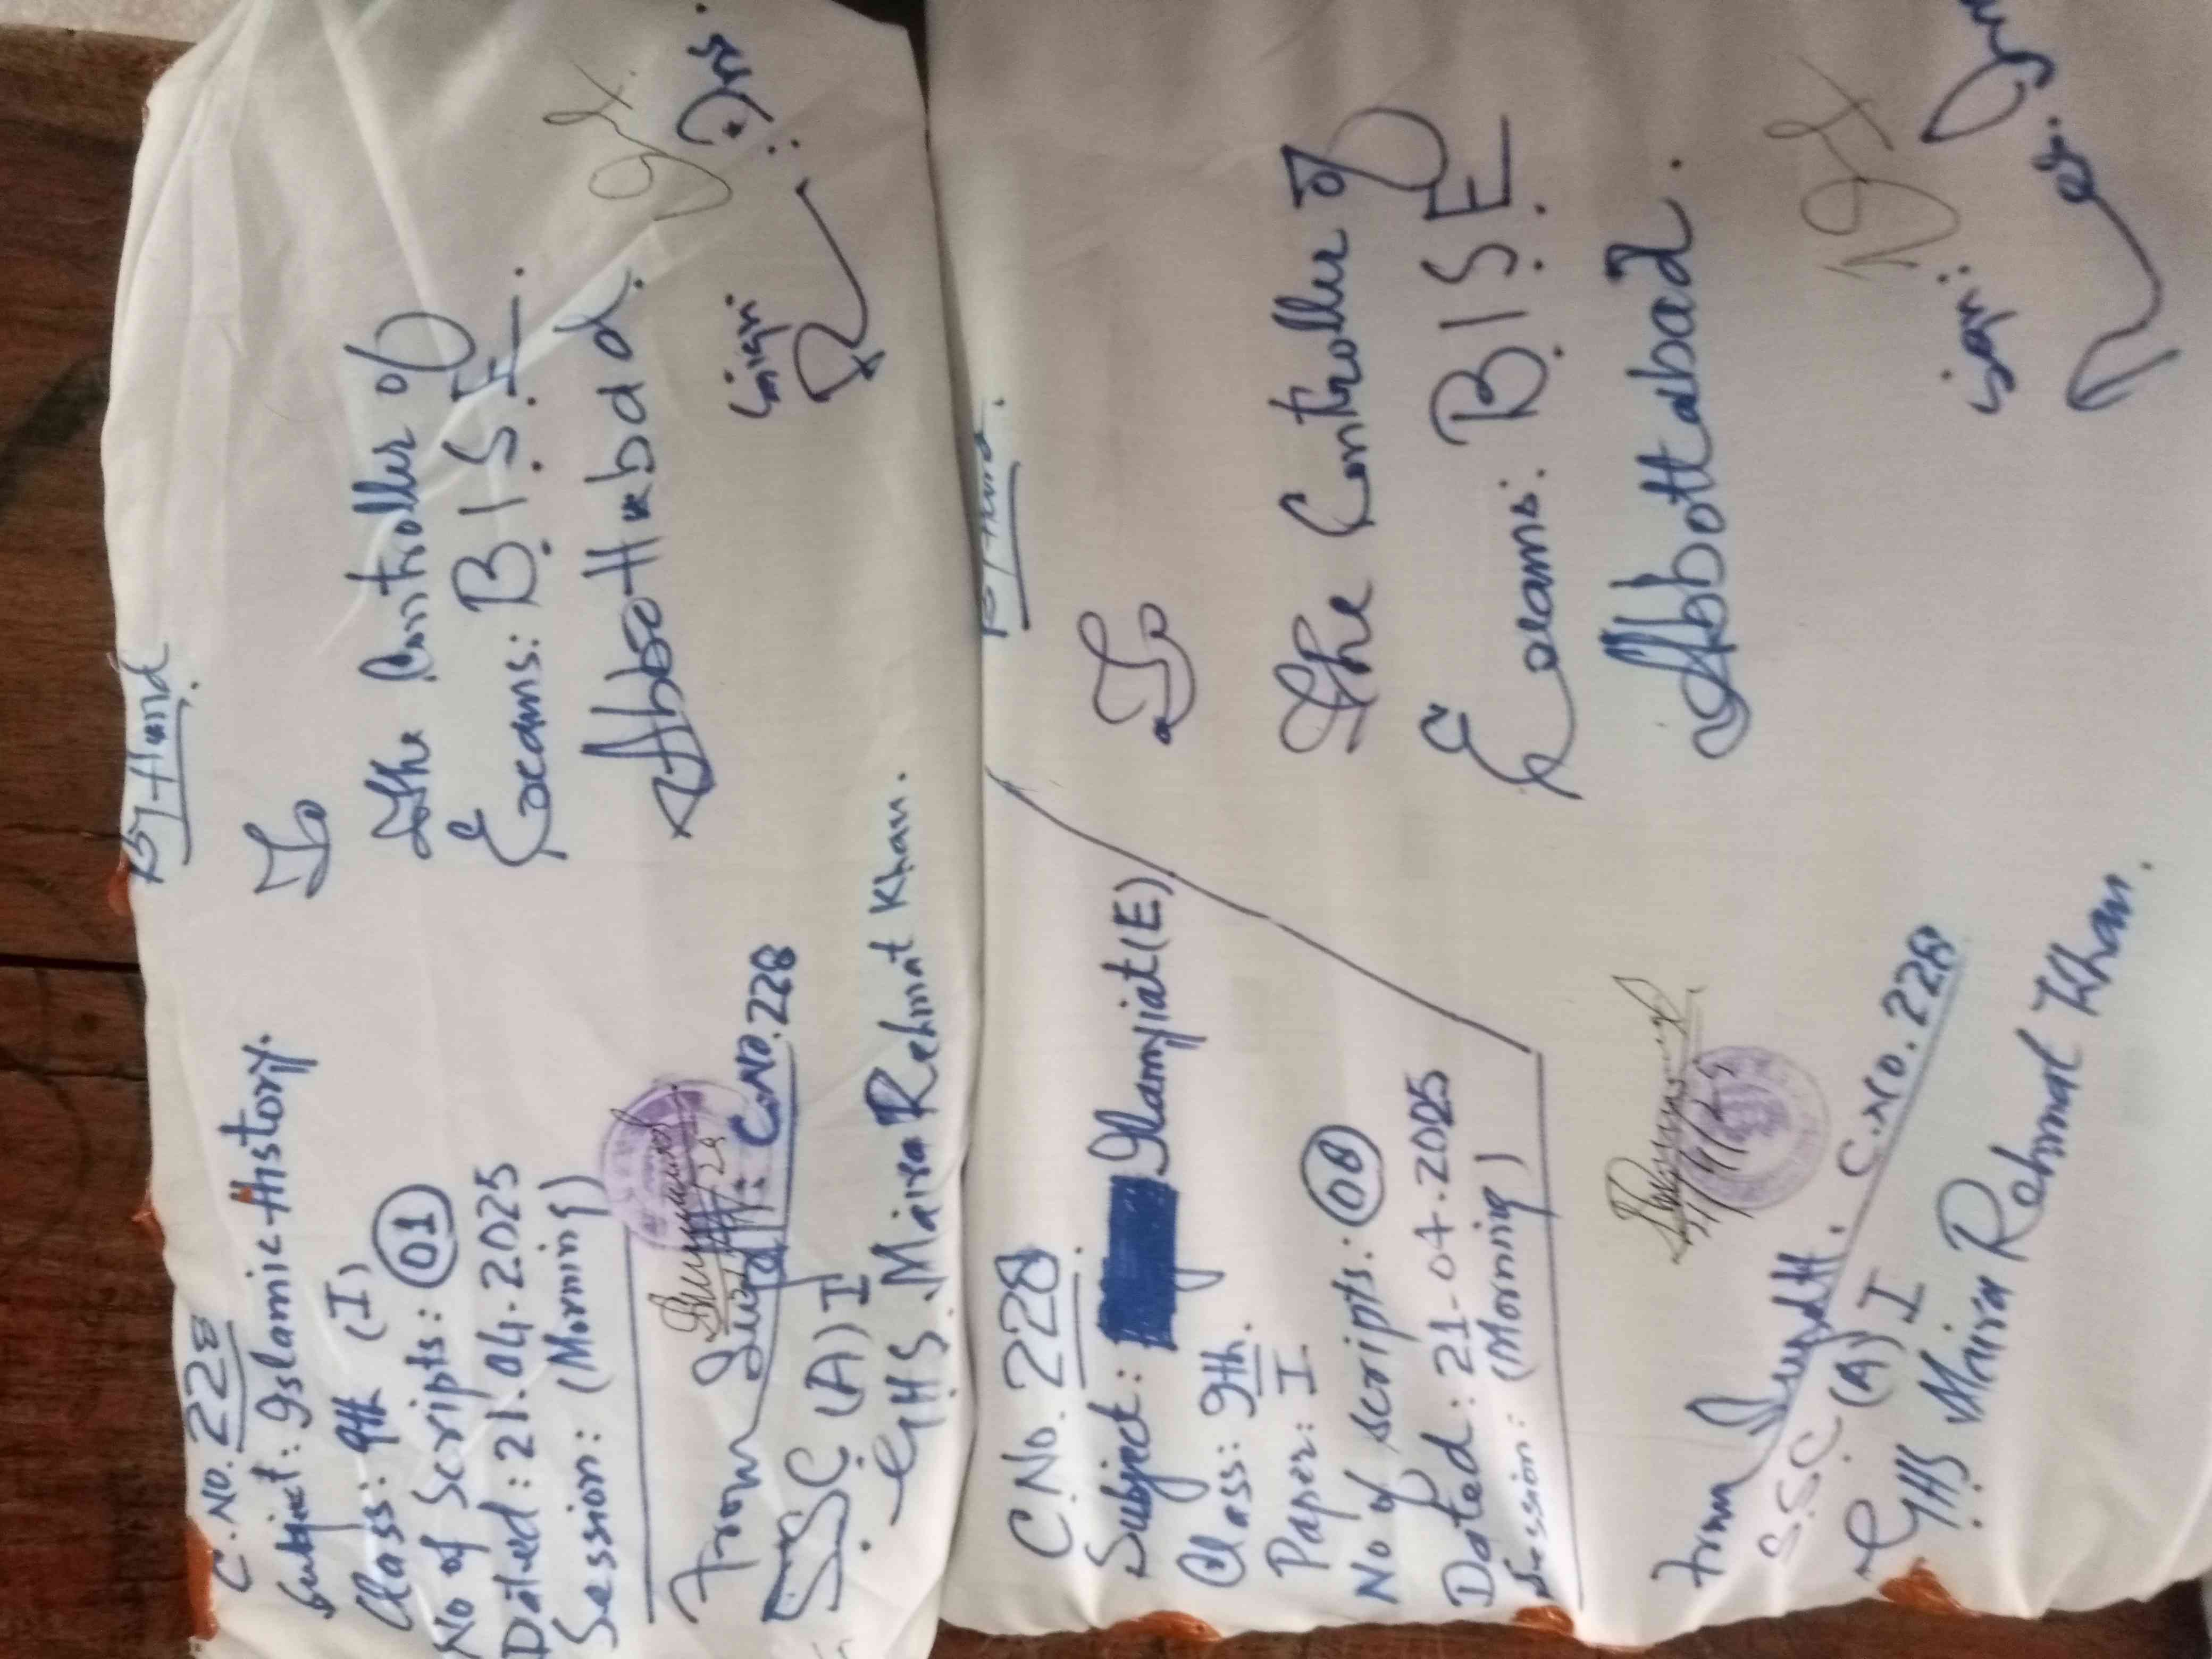 By Hand
C.No. 228
Subject: Islamic History.
Class: 9th (I)
No of Scripts: 01
Dated: 21.04.2025
Session: (Morning)
To
The Controller of
Exams: B.I.S.E.
Abbottabad.
From Supdtt: C.No. 228
SSC (A) I
GHS. Maira Rehmat Khan.
By Hand.
C.No. 228.
Subject: Islamyiat (E)
Class: 9th.
Paper: I
No of scripts: 08
Dated: 21-04.2025
Session: (Morning)
To
The Controller of
Exams: B.I.S.E.
Abbottabad.
From Supdtt. C.No. 228
S.S.C (A) I
GHS Maira Rehmat Khan.